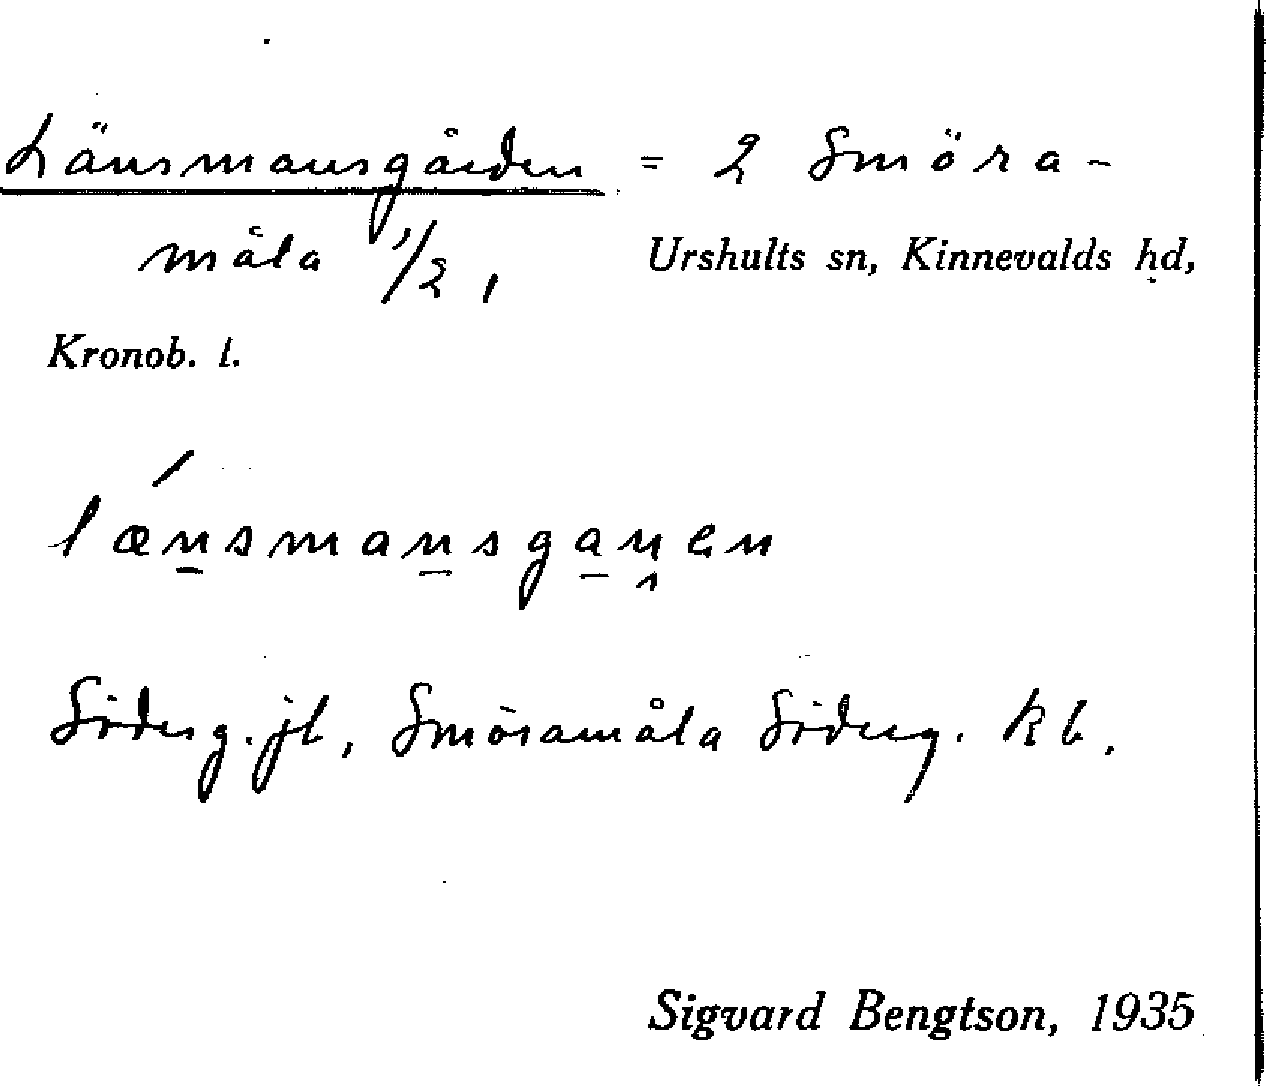 Länsmansgården = 2 Smöra-
måla 1/2, Urshults sn, Kinnevalds hd,
Kronob. l.
lænsmansganen
Söderg. jb, Smöramåla Söderg. kb.
Sigvard Bengtson, 1935